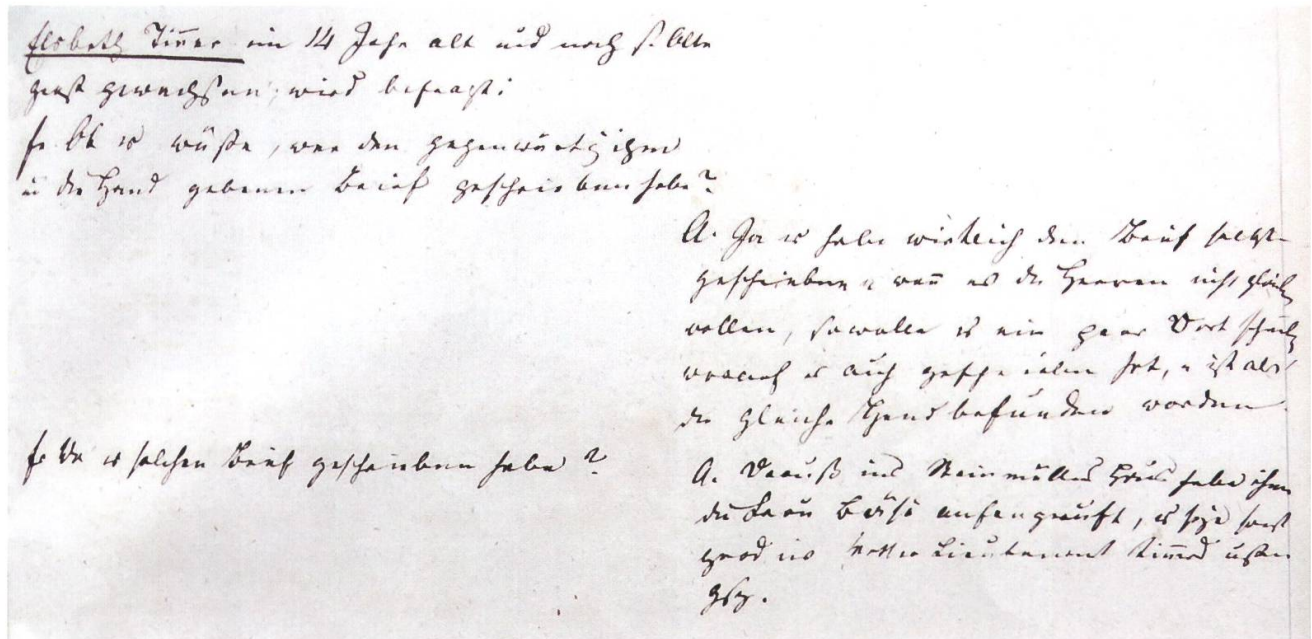 Elsbeth Timer im 14 Jahr alt und noch s. Alte
gewachsen; wird befragt:
fr. Ob es wüße, wer den gegenwärtig ihm
in die Hand gebenen Brief geschrieben habe?
A. Ja es habe wirklich den Brief selbst
geschrieben u. wenn es die Herren nicht glauben
wollen, so wolle es ein paar Wort schreiben
worauf es auch geschrieben hat, u. ist als
die gleiche Hand befunden worden
fr. Wo es solchen Brief geschrieben habe?
A. Drauß ins Steinmüllers Haus habe ihm
die Frau Bäsi aufengruft, es seye sonst
grad ins Vetter Lieutenant ußen
gsy.